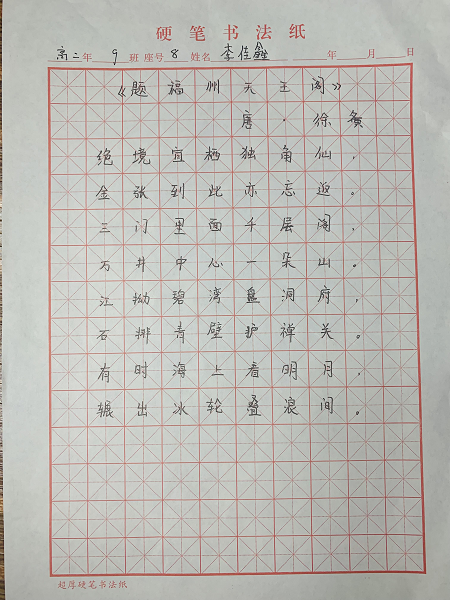 硬笔书法纸
高二年 9 班 座号 8 姓名 李佳鑫 年 月 日
《题福州天王阁》
唐·徐夤
绝境宜栖独角仙，
金张到此亦忘返。
三门里面千层阁，
万井中心一朵山。
江拗碧湾盘洞府，
石排青壁护禅关。
有时海上看明月，
辗出冰轮叠浪间。
超厚硬笔书法纸